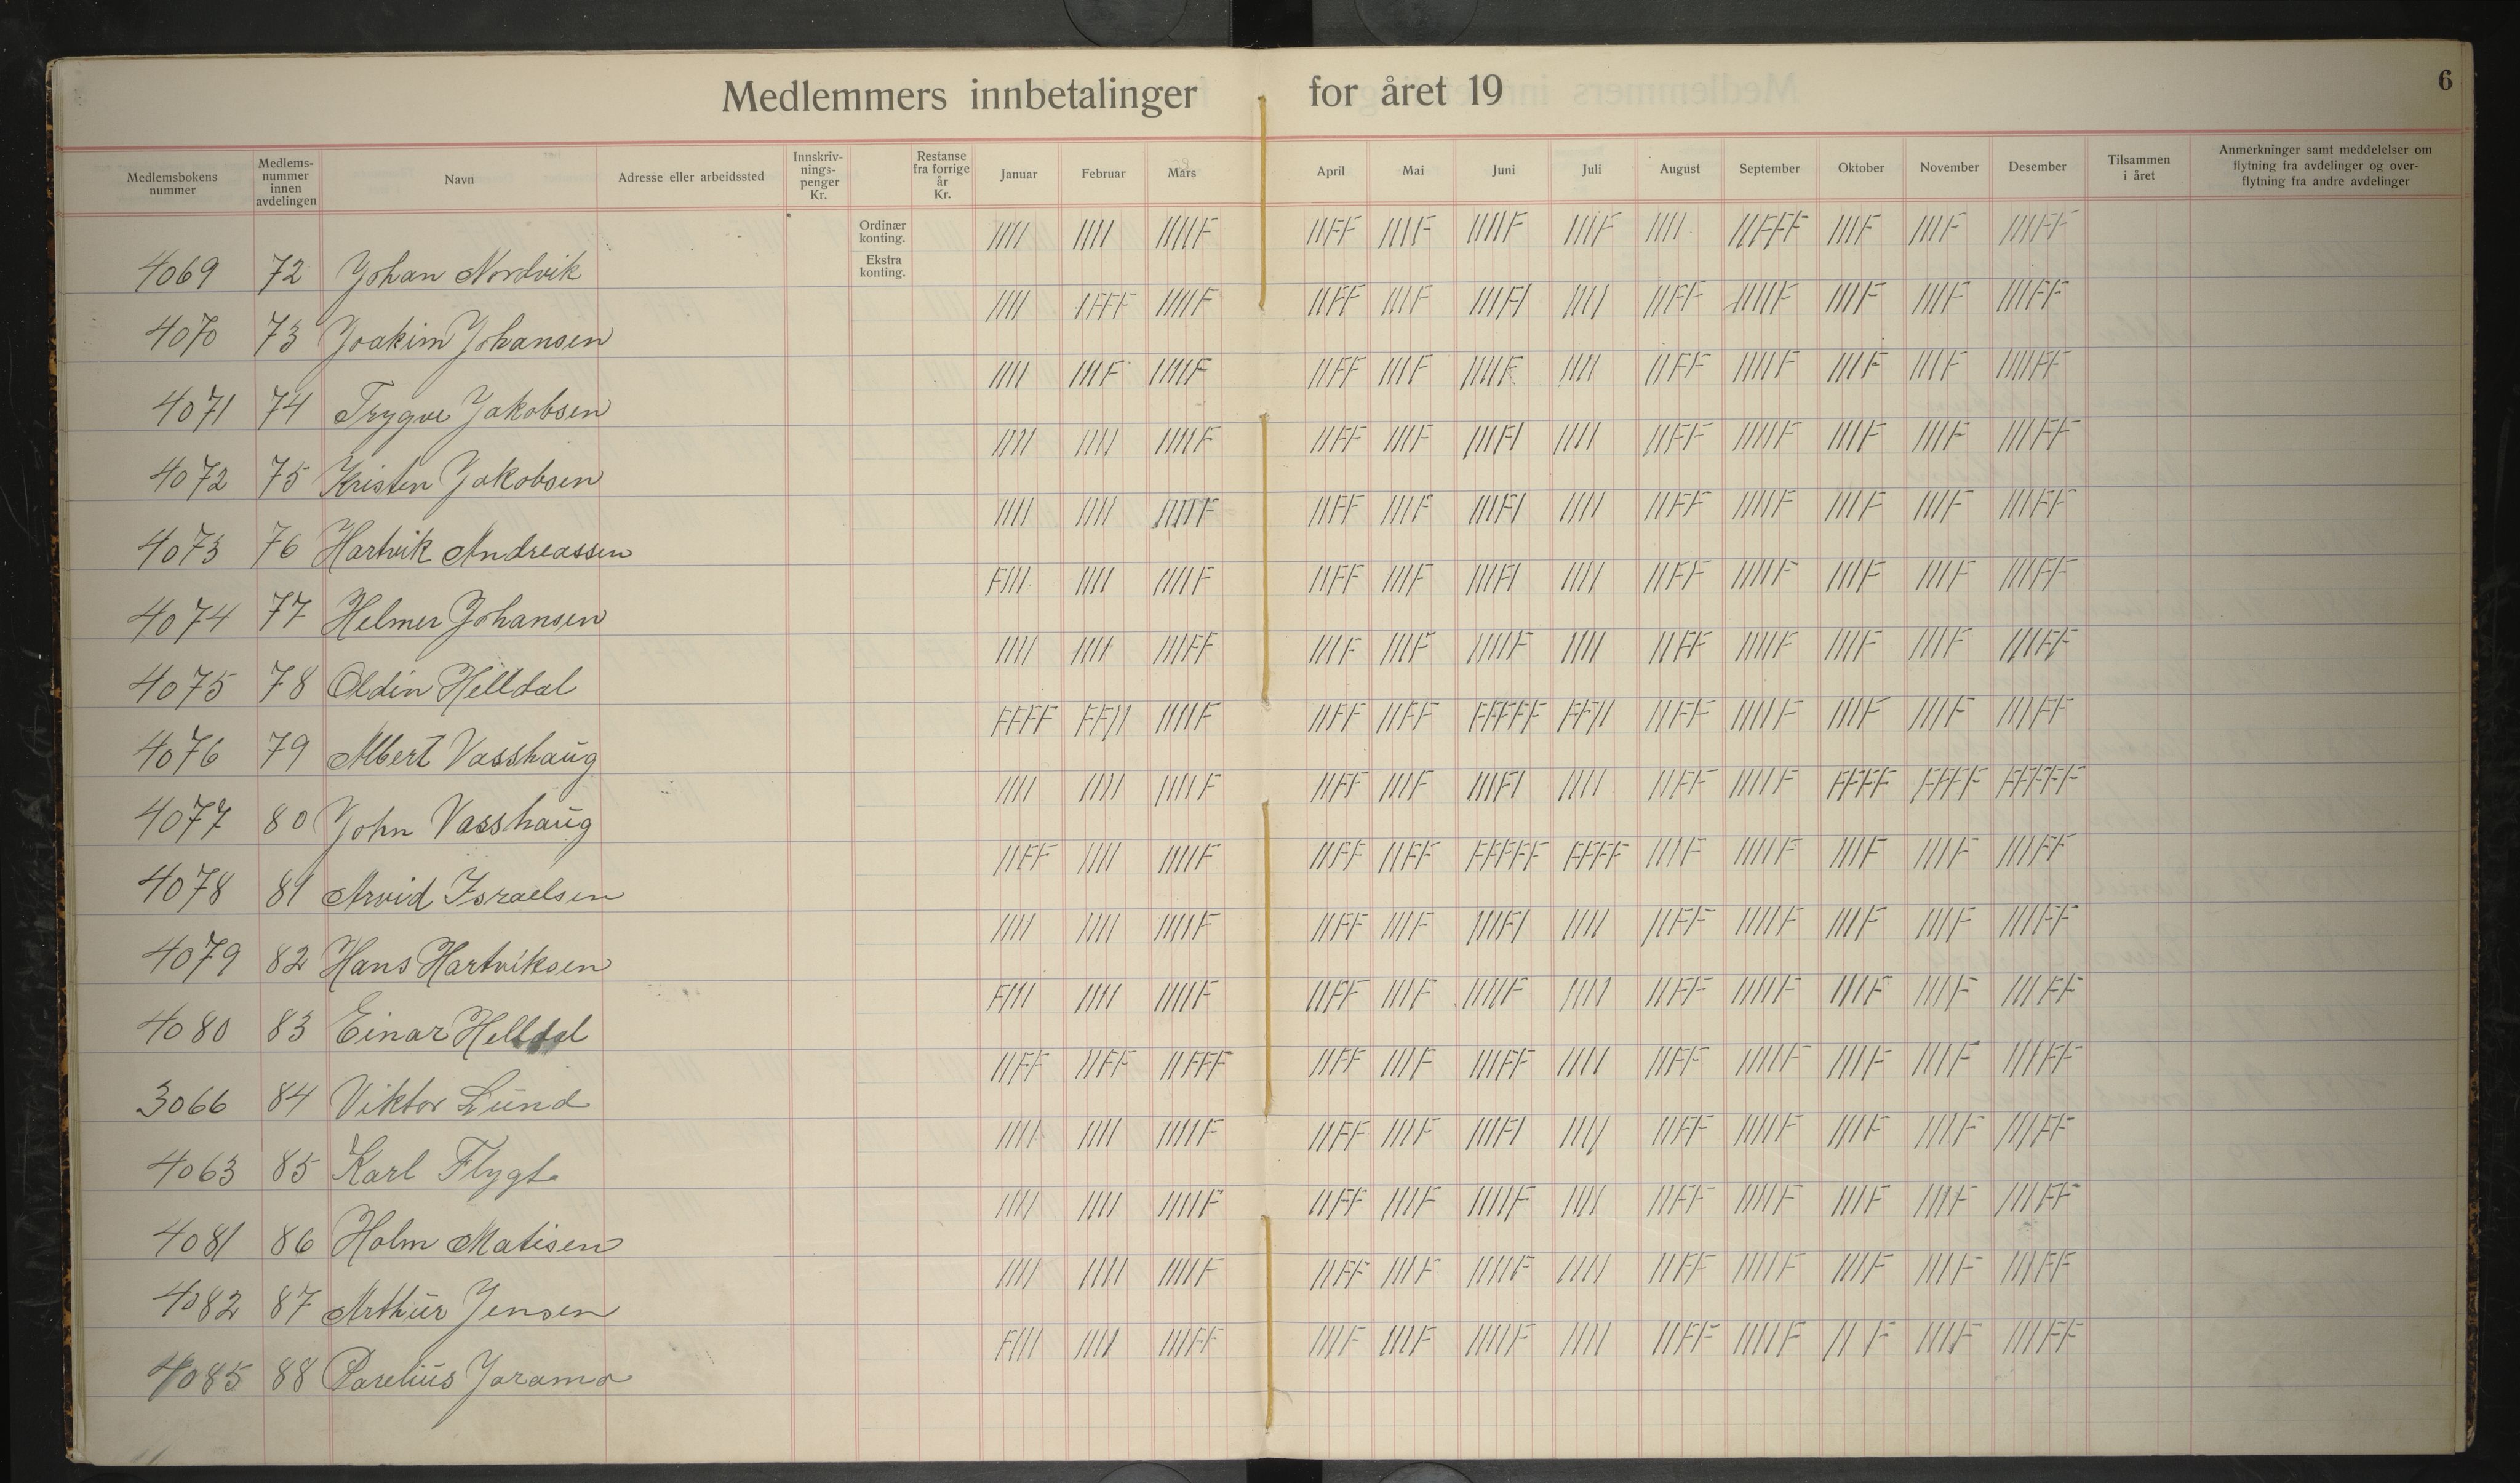 Medlemmers innbetalinger for året 19
6
Medlemsbokens nummer
Medlems-nummer innen avdelingen
Navn
Adresse eller arbeidssted
Innskriv-nings-penger Kr.
Restanse fra forrige år Kr.
Januar
Februar
Mars
April
Mai
Juni
Juli
August
September
Oktober
November
Desember
Tilsammen i året
Anmerkninger samt meddelelser om flytning fra avdelinger og over-flytning fra andre avdelinger
Ordinær konting.
Ekstra konting.
4069 72 Johan Nordvik IIII IIII IIIIF IIFF IIIF IIIIF IIIF IIII IIFFF IIIF IIIF IIIFF
4070 73 Joakim Johansen IIII IFFF IIIIF IIFF IIIF IIIFI IIII IIFF IIIIF IIIF IIIF IIIFF
4071 74 Trygve Jakobsen IIII IIIF IIIIF IIFF IIIF IIIIF IIII IIFF IIIIF IIIF IIIF IIIFF
4072 75 Kristen Jakobsen IIII IIII IIIIF IIFF IIIF IIIFI IIII IIFF IIIIF IIIF IIIF IIIFF
4073 76 Hartvik Andreassen IIII IIII IIIIF IIFF IIIF IIIFI IIII IIFF IIIIF IIIF IIIF IIIFF
4074 77 Helmer Johansen FIII IIII IIIIF IIFF IIIF IIIFI IIII IIFF IIIIF IIIF IIIF IIIFF
4075 78 Oldin Helldal IIII IIII IIIFF IIIF IIIF IIIIF IIII IIFF IIIIF IIIF IIIF IIIFF
4076 79 Albert Vasshaug FFFF FFII IIIIF IIFF IIFF FFFFF FFII IIFF IIIIF IIIF IIIF IIIFF
4077 80 John Vasshaug IIII IIII IIIIF IIFF IIIF IIIFI IIII IIFF IIIIF FFFF FFFF FFFFF
4078 81 Arvid Israelsen IIFF IIII IIIIF IIFF IIFF FFFFF FFFF IIIF IIIIF IIIF IIIF IIIFF
4079 82 Hans Hartviksen IIII IIII IIIIF IIFF IIIF IIIFI IIII IIFF IIIIF IIIF IIIF IIIFF
4080 83 Einar Helldal FIII IIII IIIIF IIFF IIIF IIIIF IIII IIFF IIIIF IIIF IIIF IIIFF
3066 84 Viktor Lund IIFF IIFF IIFFF IIFF IIIF IIIFF IIII IIFF IIIIF IIIF IIIF IIIFF
4063 85 Karl Flygt IIII IIII IIIIF IIFF IIIF IIIFI IIII IIFF IIIIF IIIF IIIF IIIFF
4081 86 Holm Matisen IIII IIII IIIIF IIFF IIIF IIIIF IIII IIFF IIIIF IIIF IIIF IIIFF
4082 87 Arthur Jensen IIII IIII IIIIF IIFF IIIF IIIIF IIII IIFF IIIIF IIIF IIIF IIIFF
4085 88 Parelius Jarama FIII IIII IIIFF IIIF IIIF IIIIF IIII IIFF IIIIF II F IIIF IIIFF